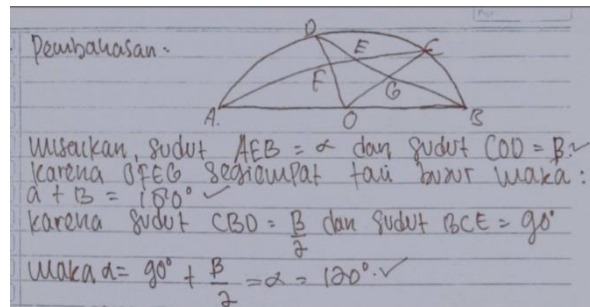 Pembahasan:
D
E
C
F
G
A
O
B
Misalkan, sudut AEB = α dan sudut COD = β. ✓
karena OFEG segiempat tali busur maka:
α + β = 180° ✓
karena sudut CBD = β/2 dan sudut BCE = 90°
Maka α = 90° + β/2 = α = 120°. ✓